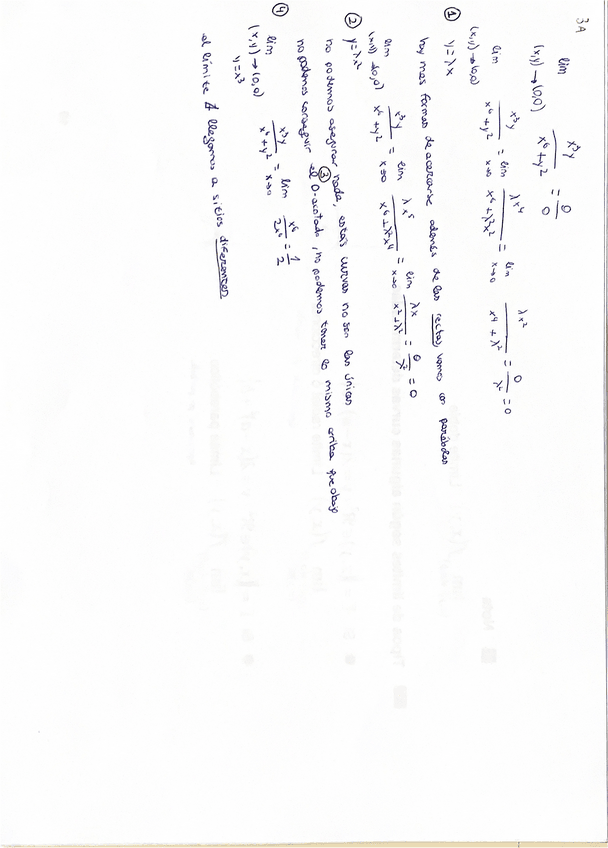 3A
lim (x,y)→(0,0) x³y / x⁶+y² = 0/0
① lim (x,y)→(0,0) y=λx x³y / x⁶+y² = lim x→0 λx⁴ / x⁶+λ²x² = lim x→0 λx² / x⁴+λ² = 0/λ² = 0
hay mas formas de acercarse además de las rectas, vamos con parábolas
② lim (x,y)→(0,0) y=λx² x³y / x⁶+y² = lim x→0 λx⁵ / x⁶+λ²x⁴ = lim x→0 λx / x²+λ² = 0/λ² = 0
no podemos asegurar nada, estas curvas no son las únicas
③
no podemos conseguir el 0·acotado, no podemos tener lo mismo arriba que abajo
④ lim (x,y)→(0,0) y=x³ x³y / x⁶+y² = lim x→0 x⁶ / 2x⁶ = 1/2
el límite ∄ llegamos a sitios diferentes